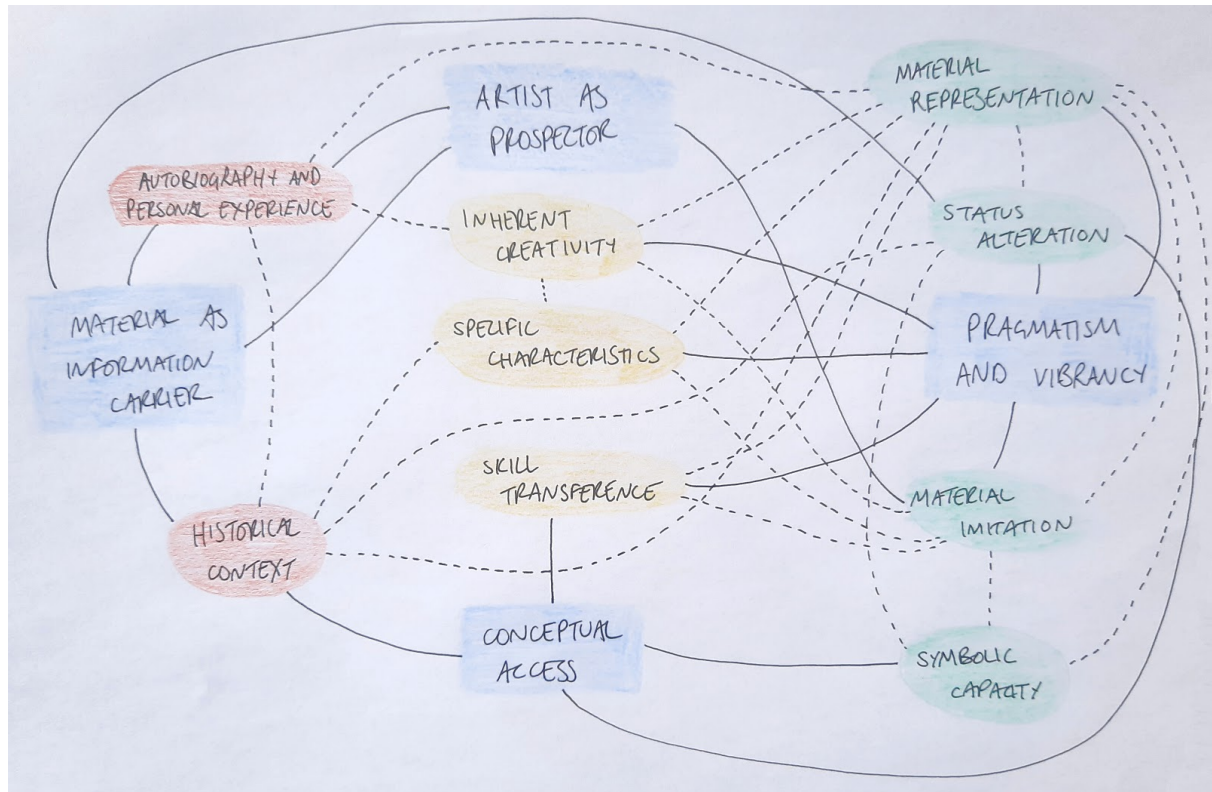 MATERIAL
REPRESENTATION
ARTIST AS
PROSPECTOR
AUTOBIOGRAPHY AND
PERSONAL EXPERIENCE
INHERENT
CREATIVITY
STATUS
ALTERATION
MATERIAL AS
INFORMATION
CARRIER
SPECIFIC
CHARACTERISTICS
PRAGMATISM
AND VIBRANCY
SKILL
TRANSFERENCE
MATERIAL
IMITATION
HISTORICAL
CONTEXT
CONCEPTUAL
ACCESS
SYMBOLIC
CAPACITY